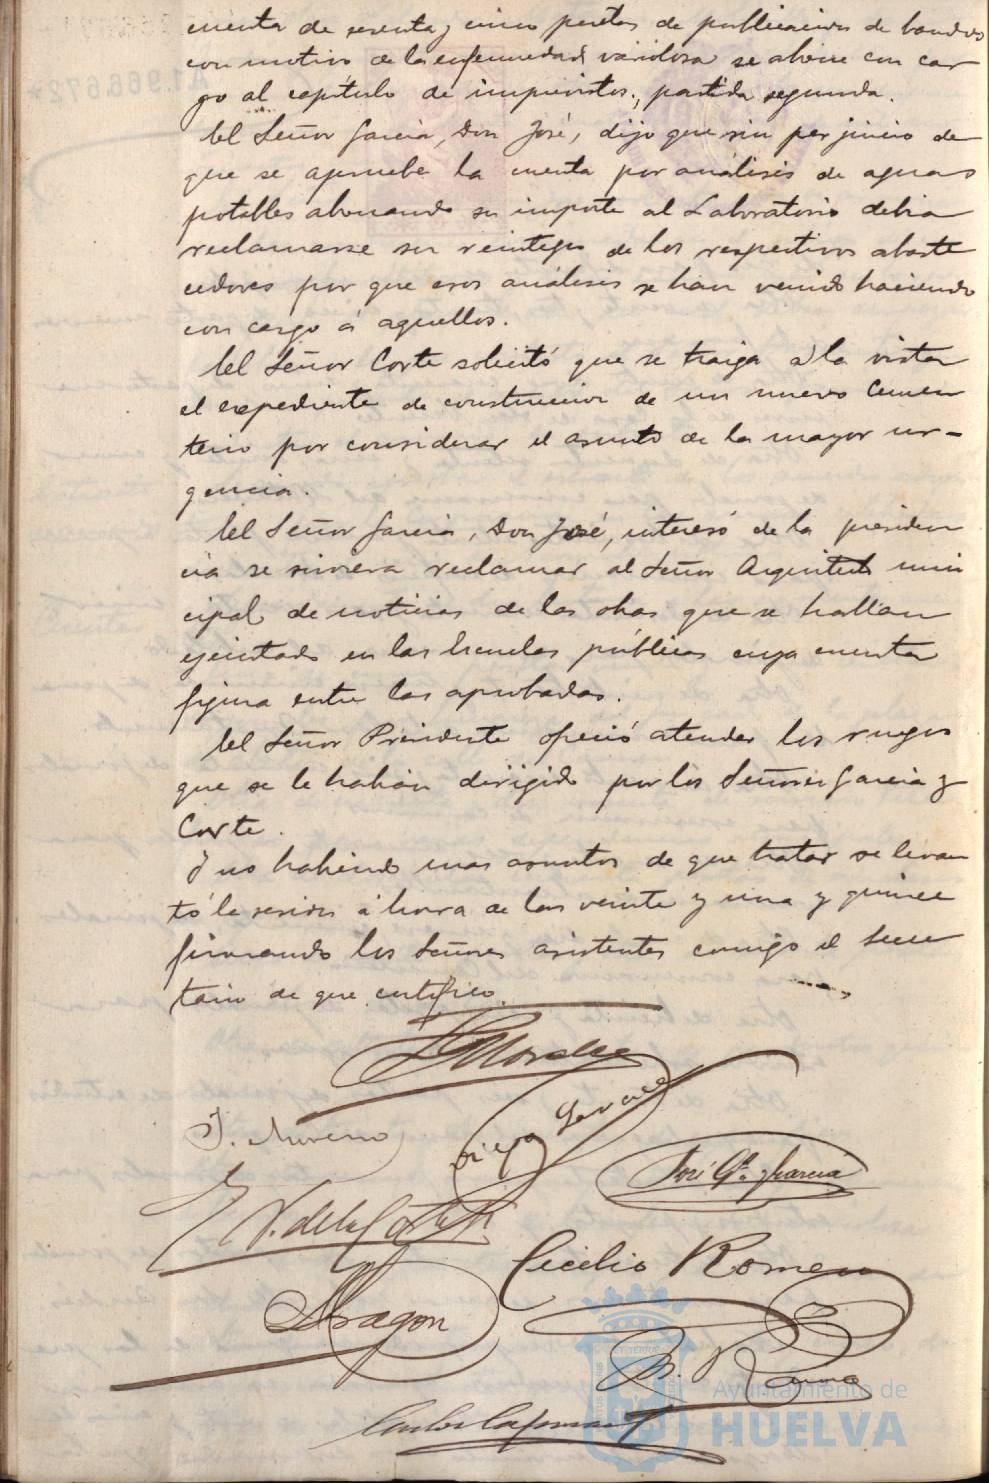 cuenta de sesenta y cinco pesetas de publicación de bandos
con motivo de la enfermedad variolosa se abone con car
go al capítulo de imprevistos, partida segunda.
El Señor García, Don José, dijo que sin perjuicio de
que se apruebe la cuenta por análisis de aguas
potables abonando su importe al Laboratorio debia
reclamarse su reintegro de los respectivos abaste
cedores por que esos análisis se han venido haciendo
con cargo á aquellos.
El Señor Corte solicitó que se traiga á la vista
el expediente de construccion de un nuevo Cemen
terio por considerar el asunto de la mayor ur-
gencia.
El Señor García, Don José, interesó de la presiden
cia se sirviera reclamar al Señor Arquitecto muni
cipal de noticias de las obras que se hallan
ejecutado en las Escuelas públicas cuya cuenta
figura entre las aprobadas.
El Señor Presidente ofreció atender los ruegos
que se le habian dirigido por los Señores García y
Corte.
Y no habiendo mas asuntos de que tratar se levan
tó la sesion á hora de las veinte y una y quince
firmando los Señores asistentes conmigo el Secre
tario de que certifico.
Morales
J. Moreno
Diego
José Gª y García
V. de la Corte
Cecilio Romero
Aragon
Carlos
A1.966.672*
Ayuntamiento de
HUELVA